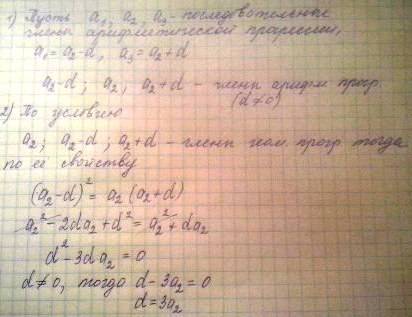 1) Пусть a₁, a₂, a₃ - последовательные
члены арифметической прогрессии,
a₁ = a₂ - d, a₃ = a₂ + d
a₂ - d ; a₂ ; a₂ + d - члены арифм прогр.
(d ≠ 0)
2) По условию
a₂ ; a₂ - d ; a₂ + d - члены геом. прогр. тогда
по её свойству
(a₂ - d)² = a₂ (a₂ + d)
a₂² - 2da₂ + d² = a₂² + da₂
d² - 3da₂ = 0
d ≠ 0, тогда d - 3a₂ = 0
d = 3a₂